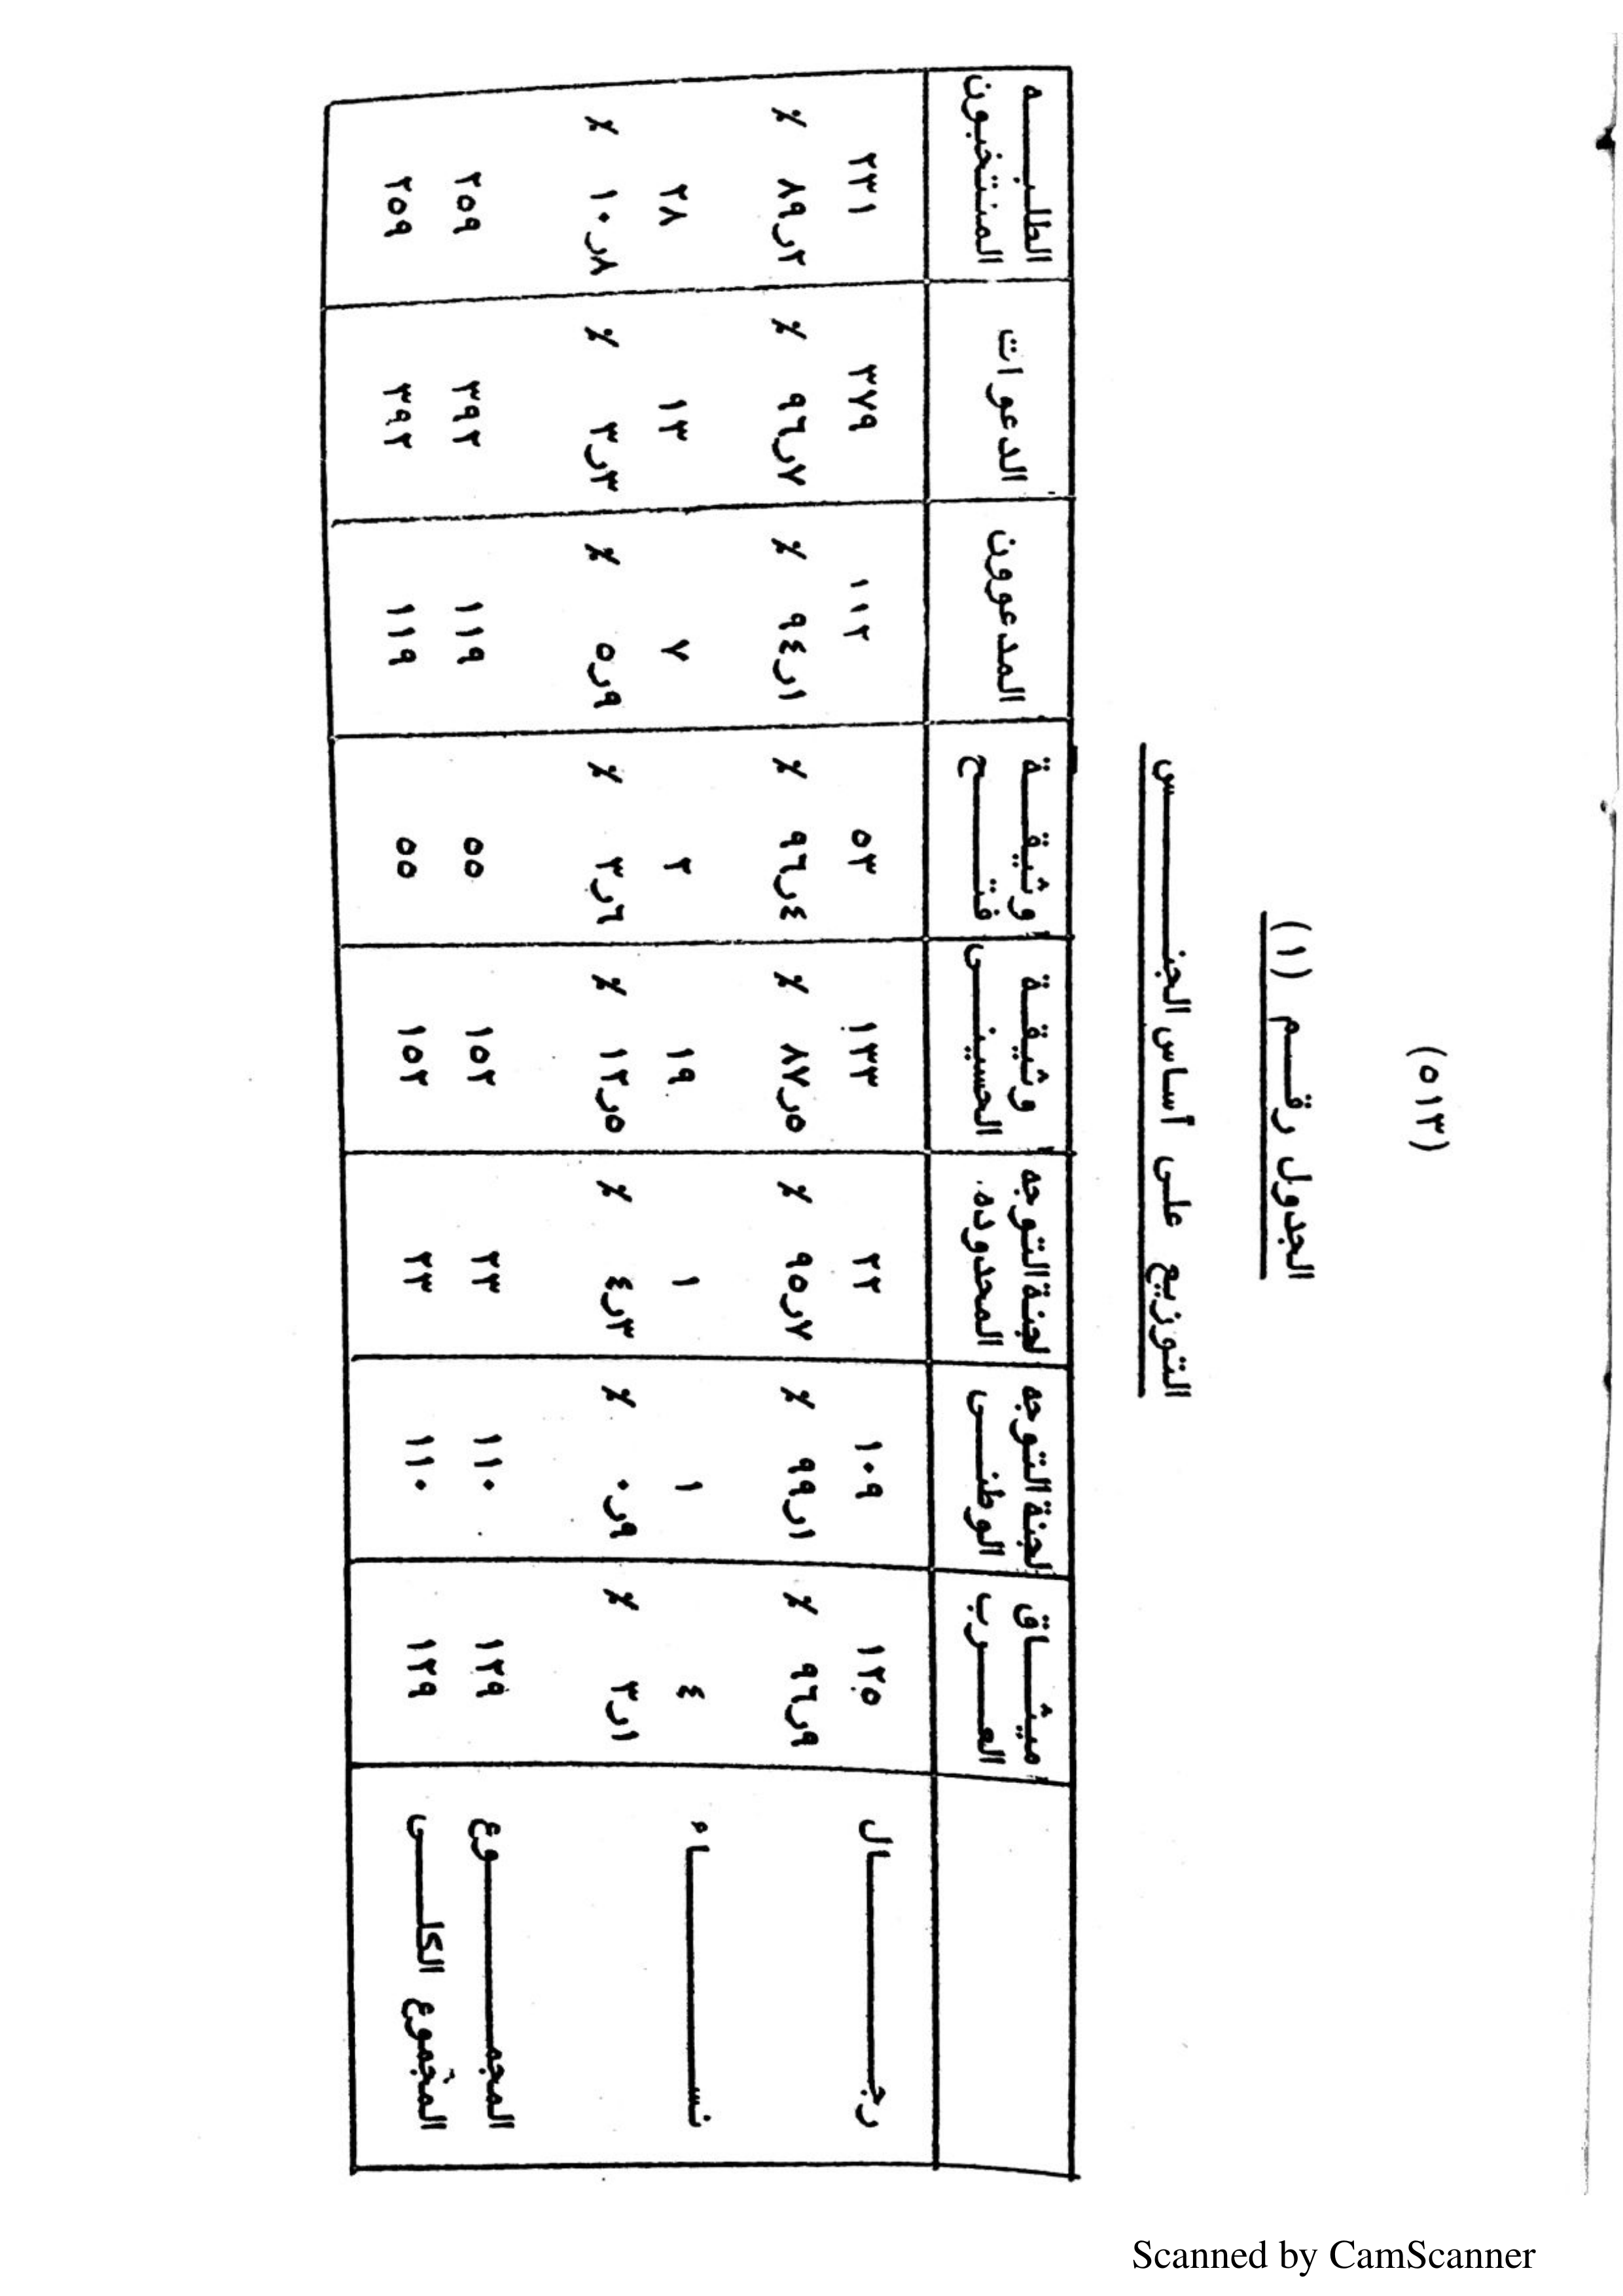 (٥١٣)
الجدول رقم (١)
التوزيع على أساس الجنس
ميثاق العرب | لجنة التوجه الوطنى | لجنة التوجه المحدوده | وثيقة الحسينى | وثيقة فتح | المدعوون | الدعوات | الطلبه المنتخبون
رجال ١٢٥ ١٠٩ ٢٢ ١٣٣ ٥٣ ١١٢ ٣٧٩ ٢٣١
٩٦ر٩ ٪ ٩٩ر١ ٪ ٩٥ر٧ ٪ ٨٧ر٥ ٪ ٩٦ر٤ ٪ ٩٤ر١ ٪ ٩٦ر٧ ٪ ٨٩ر٢ ٪
نساء ٤ ١ ١ ١٩ ٢ ٧ ١٣ ٢٨
٣ر١ ٪ ٠ر٩ ٪ ٤ر٣ ٪ ١٢ر٥ ٪ ٣ر٦ ٪ ٥ر٩ ٪ ٣ر٣ ٪ ١٠ر٨ ٪
المجموع ١٢٩ ١١٠ ٢٣ ١٥٢ ٥٥ ١١٩ ٣٩٢ ٢٥٩
المجموع الكلى ١٢٩ ١١٠ ٢٣ ١٥٢ ٥٥ ١١٩ ٣٩٢ ٢٥٩
Scanned by CamScanner